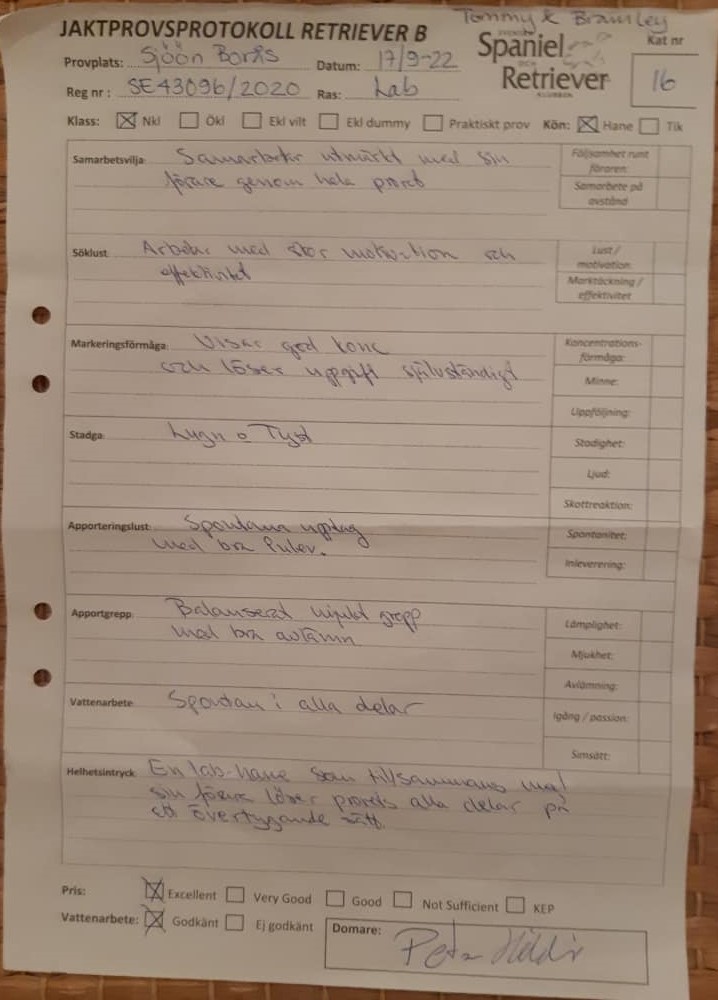 Tommy & Bramley
JAKTPROVSPROTOKOLL RETRIEVER B
SVENSKA Spaniel OCH Retriever KLUBBEN
Kat nr
16
Provplats: Sjöön Borås Datum: 17/9-22
Reg nr: SE43096/2020 Ras: Lab
Klass: Nkl Ökl Ekl vilt Ekl dummy Praktiskt prov Kön: Hane Tik
Samarbetsvilja: Samarbetar utmärkt med sin
förare genom hela provet
Följsamhet runt föraren:
Samarbete på avstånd
Söklust: Arbetar med stor motivation och
effektivitet
Lust / motivation:
Marktäckning / effektivitet
Markeringsförmåga: Visar god konc
och löser uppgift självständigt
Koncentrations-förmåga:
Minne:
Uppföljning:
Stadga: Lugn o Tyst
Stadighet:
Ljud:
Skottreaktion:
Apporteringslust: Spontana upptag
med bra inlev.
Spontanitet:
Inleverering:
Apportgrepp: Balanserat mjukt grepp
med bra avlämn
Lämplighet:
Mjukhet:
Avlämning:
Vattenarbete: Spontan i alla delar
Igång / passion:
Simsätt:
Helhetsintryck: En lab-hane som tillsammans med
sin förare löser provets alla delar på
ett övertygande sätt.
Pris: Excellent Very Good Good Not Sufficient KEP
Vattenarbete: Godkänt Ej godkänt
Domare: Peter